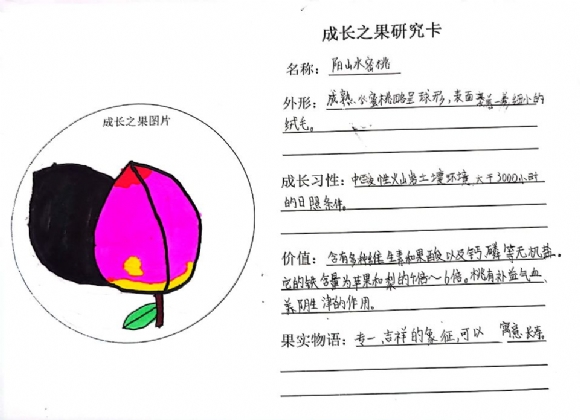 成长之果研究卡
名称：阳山水蜜桃
成长之果图片
外形：成熟水蜜桃略呈球形，表面裹着一层细小的
绒毛。
成长习性：酸性火山岩土壤环境，大于3000小时
的日照条件。
价值：含有多种维生素和果酸以及钙、磷等无机盐。
它的铁含量为苹果和梨的4倍～6倍。桃有补益气血、
养阴生津的作用。
果实物语：专一，吉祥的象征，可以 寓意长寿。